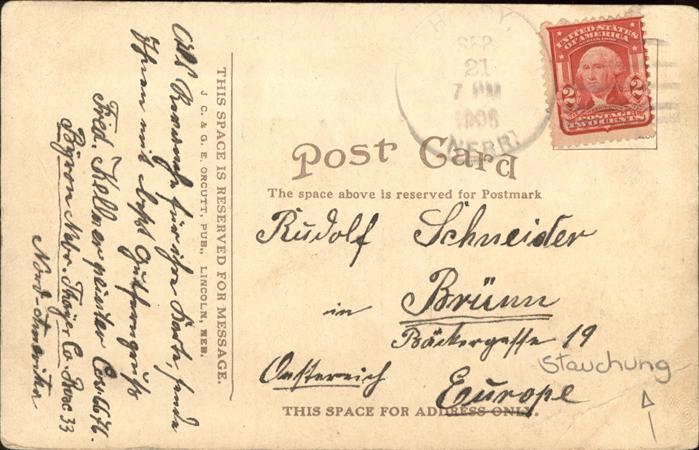 HARDY,
SEP
21
7 PM
1906
NEBR.
UNITED STATES
OF AMERICA
2 2
POSTAGE
TWO CENTS
Post Card
The space above is reserved for Postmark
Rudolf Schneider
in Brünn
Bäckergasse 19
Stauchung
Oesterreich Europe
THIS SPACE FOR ADDRESS ONLY.
THIS SPACE IS RESERVED FOR MESSAGE.
J. C. & G. E. ORCUTT, PUB., LINCOLN, NEB.
Als Revanche für ihre Karte, sende
Ihnen mit
Fried. Kellmer
Byron Nebr. Thayer Co. 33
Nord-Amerika